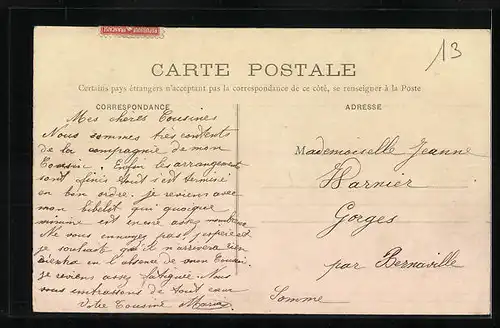 REPUBLIQUE FRANÇAISE
13
CARTE POSTALE
Certains pays étrangers n'acceptant pas la correspondance de ce côté, se renseigner à la Poste
CORRESPONDANCE
ADRESSE
Mes chères Cousines
Nous sommes très contents
de la compagnie de mon
Cousin. Enfin les arrangement
sont finis tout s'est terminé
en bon ordre. je reviens avec
mon bibelot qui quoique
minime est encore assez
Ne vous ennuyez pas j'espère et
je souhait qu'il n'arrivera rien
en l'absence de mon Cousin
je reviens assez fatiguée. Nous
vous embrassons de tout cœur
Votre Cousine Maria
Mademoiselle Jeanne
Warnier
Gorges
par Bernaville
Somme